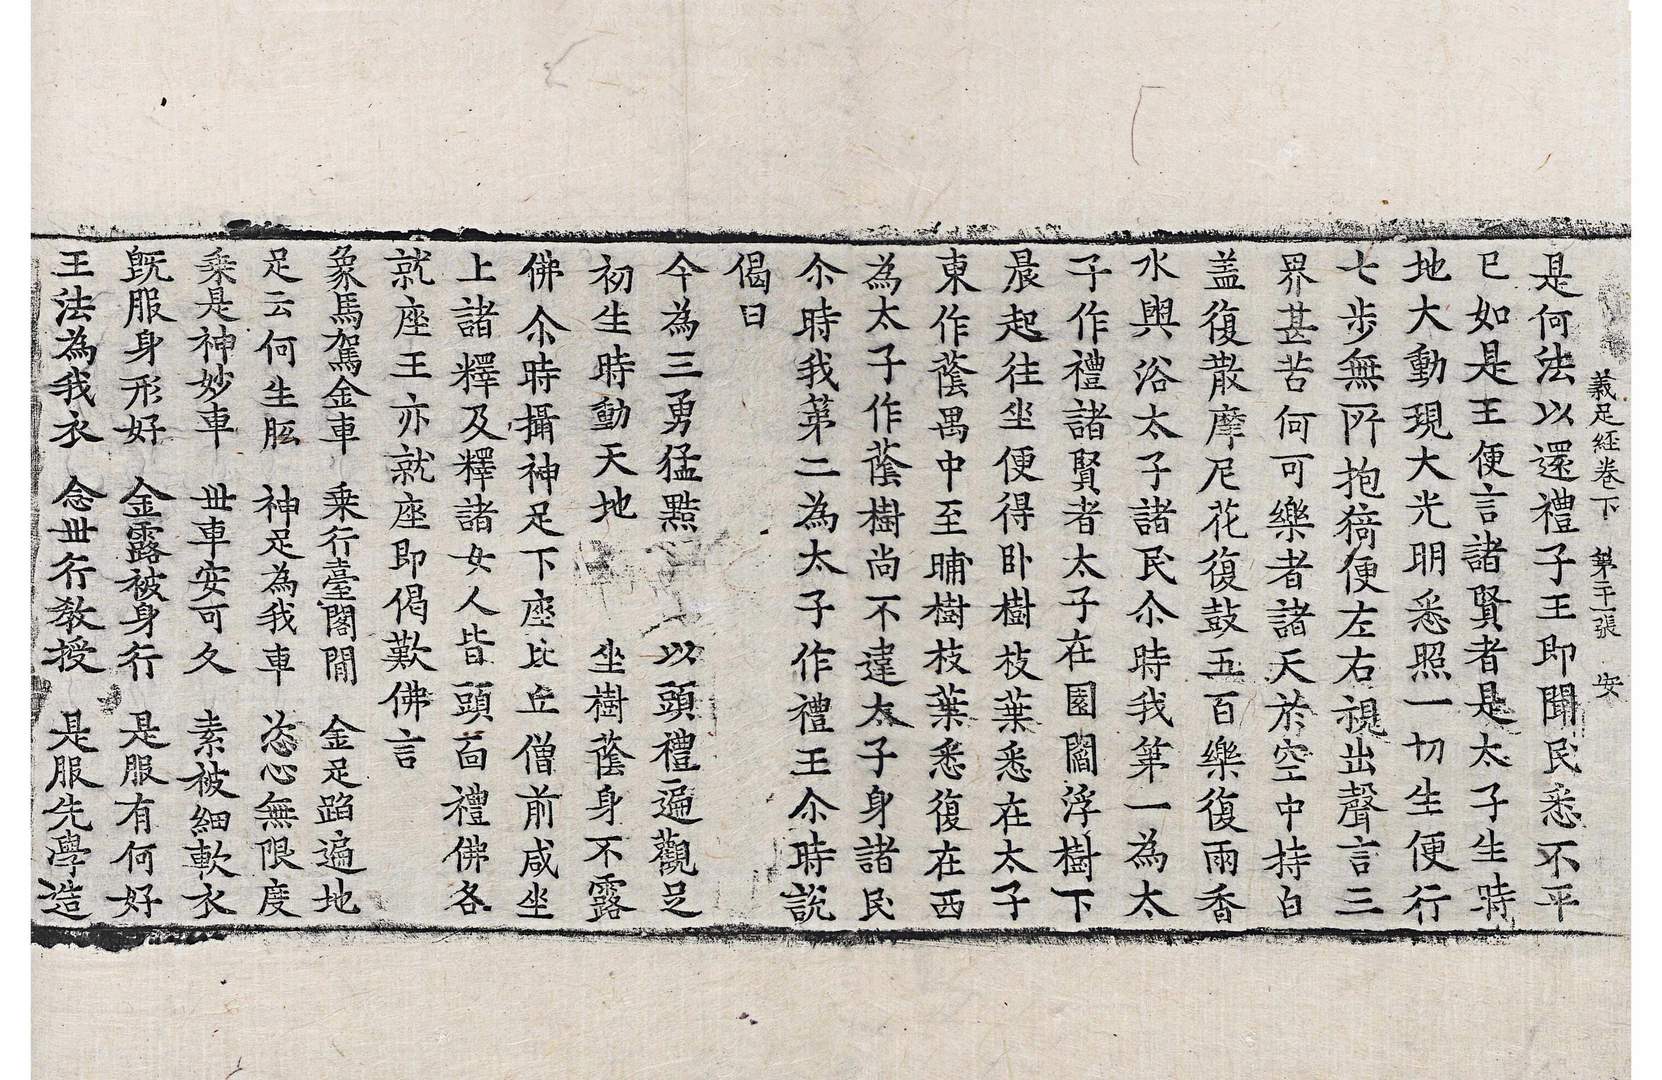 義足經卷下　第二十一張　安
是何法以還禮子王即聞民悉不平
已如是王便言諸賢者是太子生時
地大動現大光明悉照一切生便行
七步無所抱猗便左右視出聲言三
界甚苦何可樂者諸天於空中持白
盖復散摩尼花復鼓五百樂復雨香
水與浴太子諸民尒時我第一為太
子作禮諸賢者太子在園閻浮樹下
晨起往坐便得卧樹枝葉悉在太子
東作蔭禺中至晡樹枝葉悉復在西
為太子作蔭樹尚不違太子身諸民
尒時我第二為太子作禮王尒時說
偈曰
今為三勇猛點　以頭禮遍觀足
初生時動天地　坐樹蔭身不露
佛尒時攝神足下座比丘僧前咸坐
上諸釋及釋諸女人皆頭面禮佛各
就座王亦就座即偈歎佛言
象馬駕金車　乘行臺閣間　金足蹈遍地
足云何生胝　神足為我車　恣心無限度
乘是神妙車　丗車安可久　素被細軟衣
既服身形好　金露被身行　是服有何好
王法為我衣　念丗行教授　是服先學造